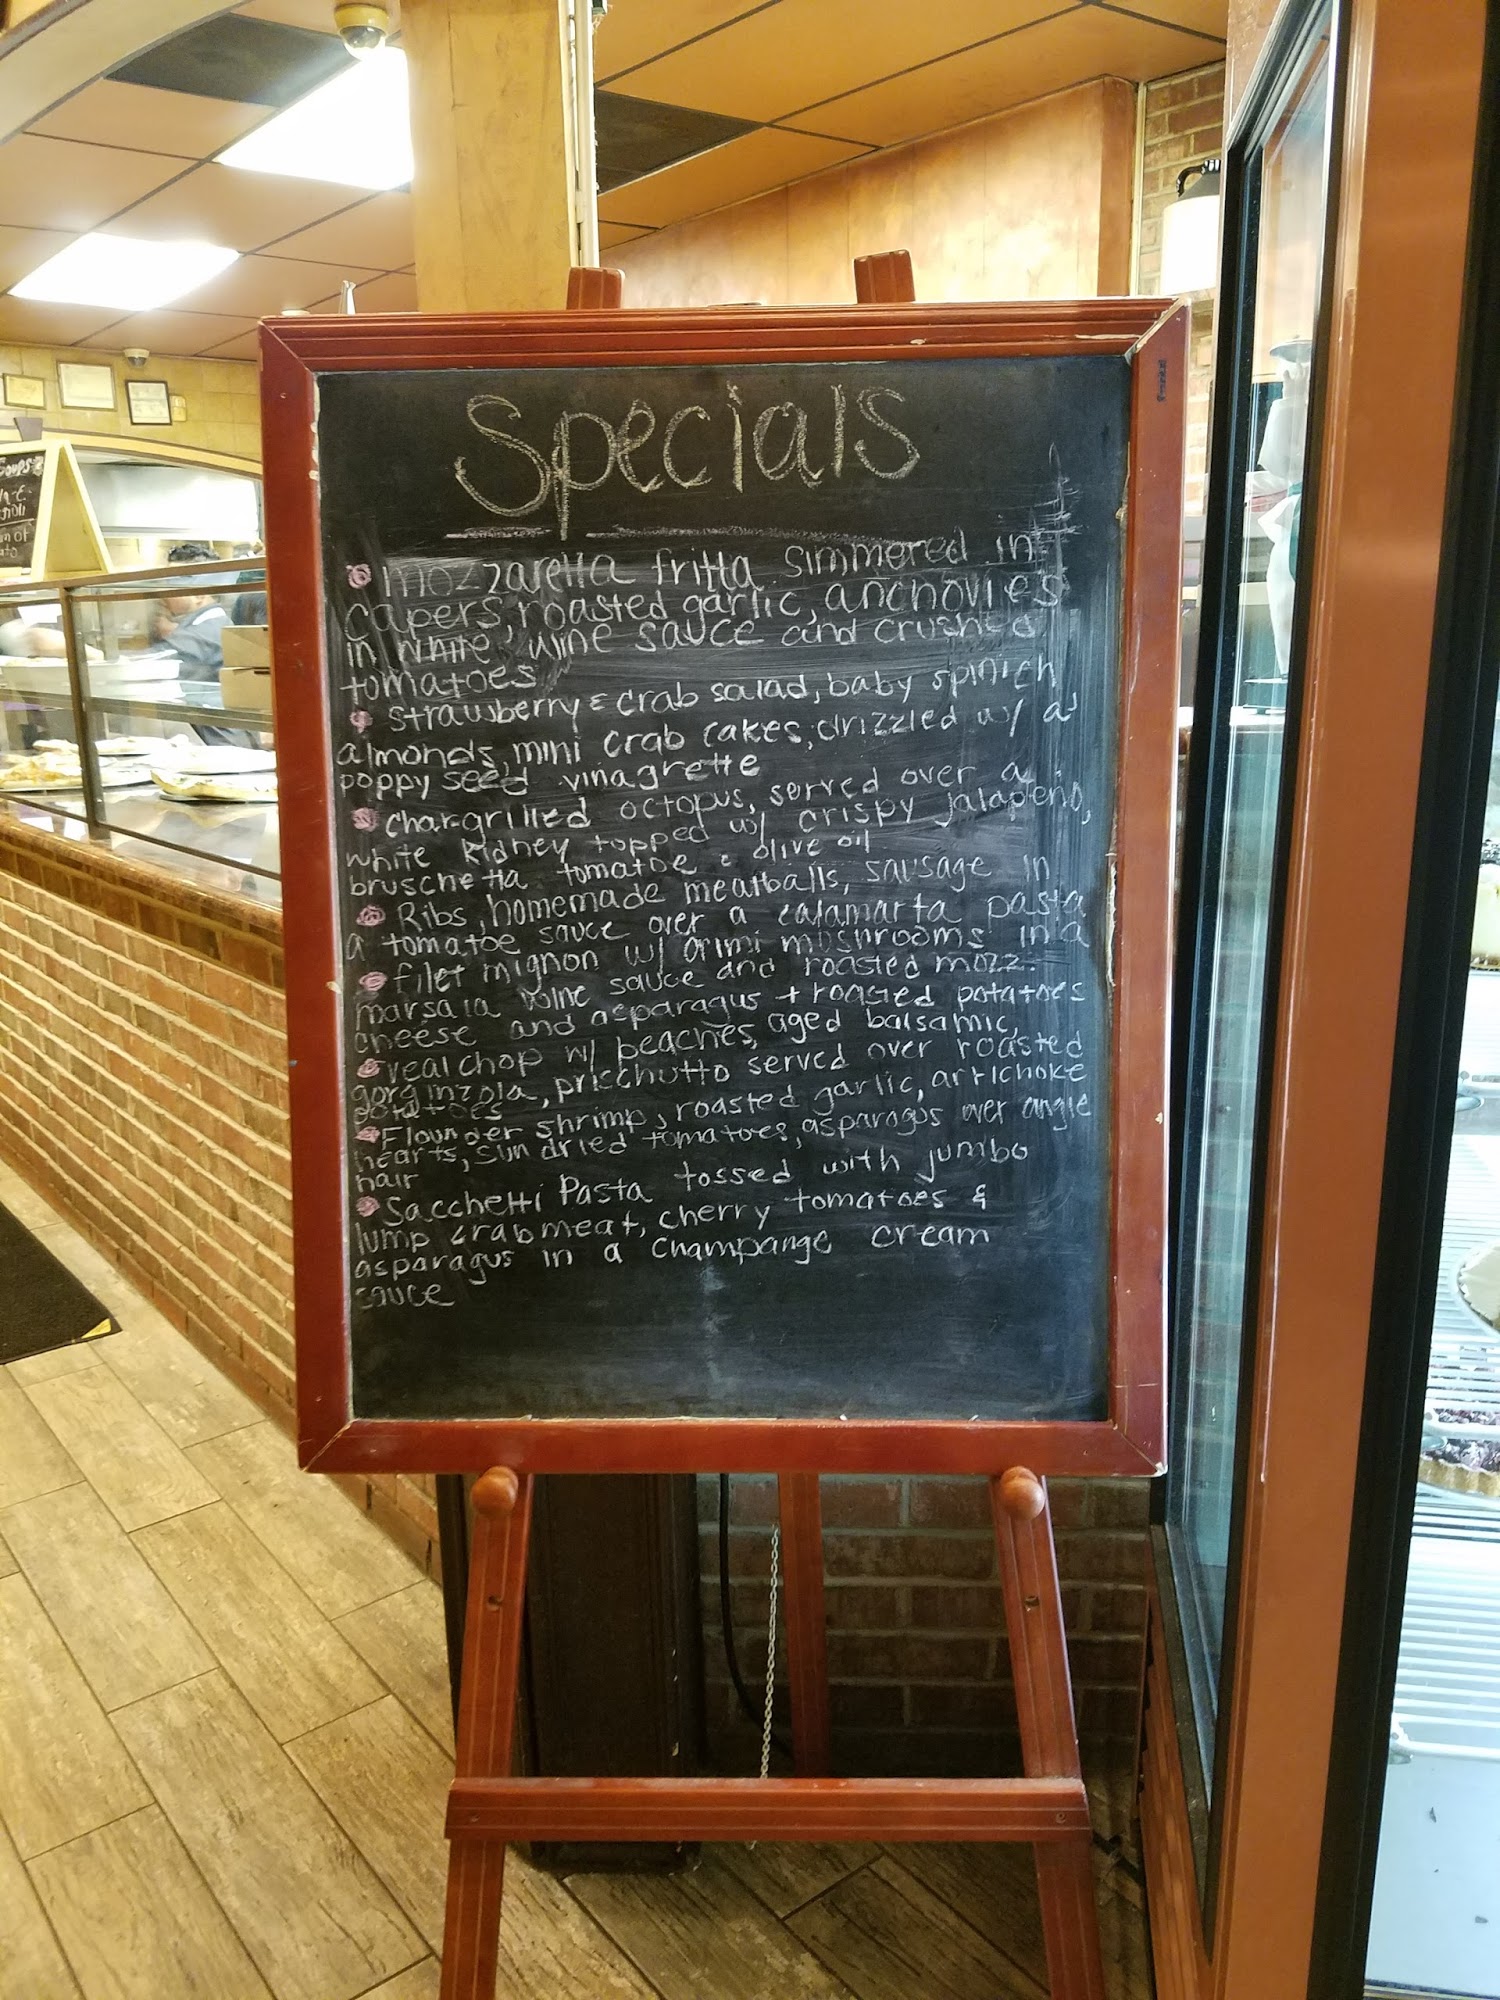 Soups
Specials
mozzarella fritta simmered in
capers, roasted garlic, anchovies
in white wine sauce and crushed
tomatoes
strawberry & crab salad, baby spinich
almonds, mini crab cakes, drizzled w/ a
poppy seed vinagrette
chargrilled octopus, served over a
white kidney topped w/ crispy jalapeno,
bruschetta tomatoe & olive oil
Ribs, homemade meatballs, sausage in
a tomatoe sauce over a calamarta pasta
filet mignon w/ crimi moshrooms in a
marsala wine sauce and roasted mozz.
cheese and asparagus + roasted potatoes
veal chop w/ peaches, aged balsamic,
gorginzola, prischutto served over roasted
potatoes
Flounder shrimp, roasted garlic, artichoke
hearts, sun dried tomatoes, asparagus over angle
hair
Sacchetti Pasta tossed with jumbo
lump crabmeat, cherry tomatoes &
asparagus in a champange cream
sauce